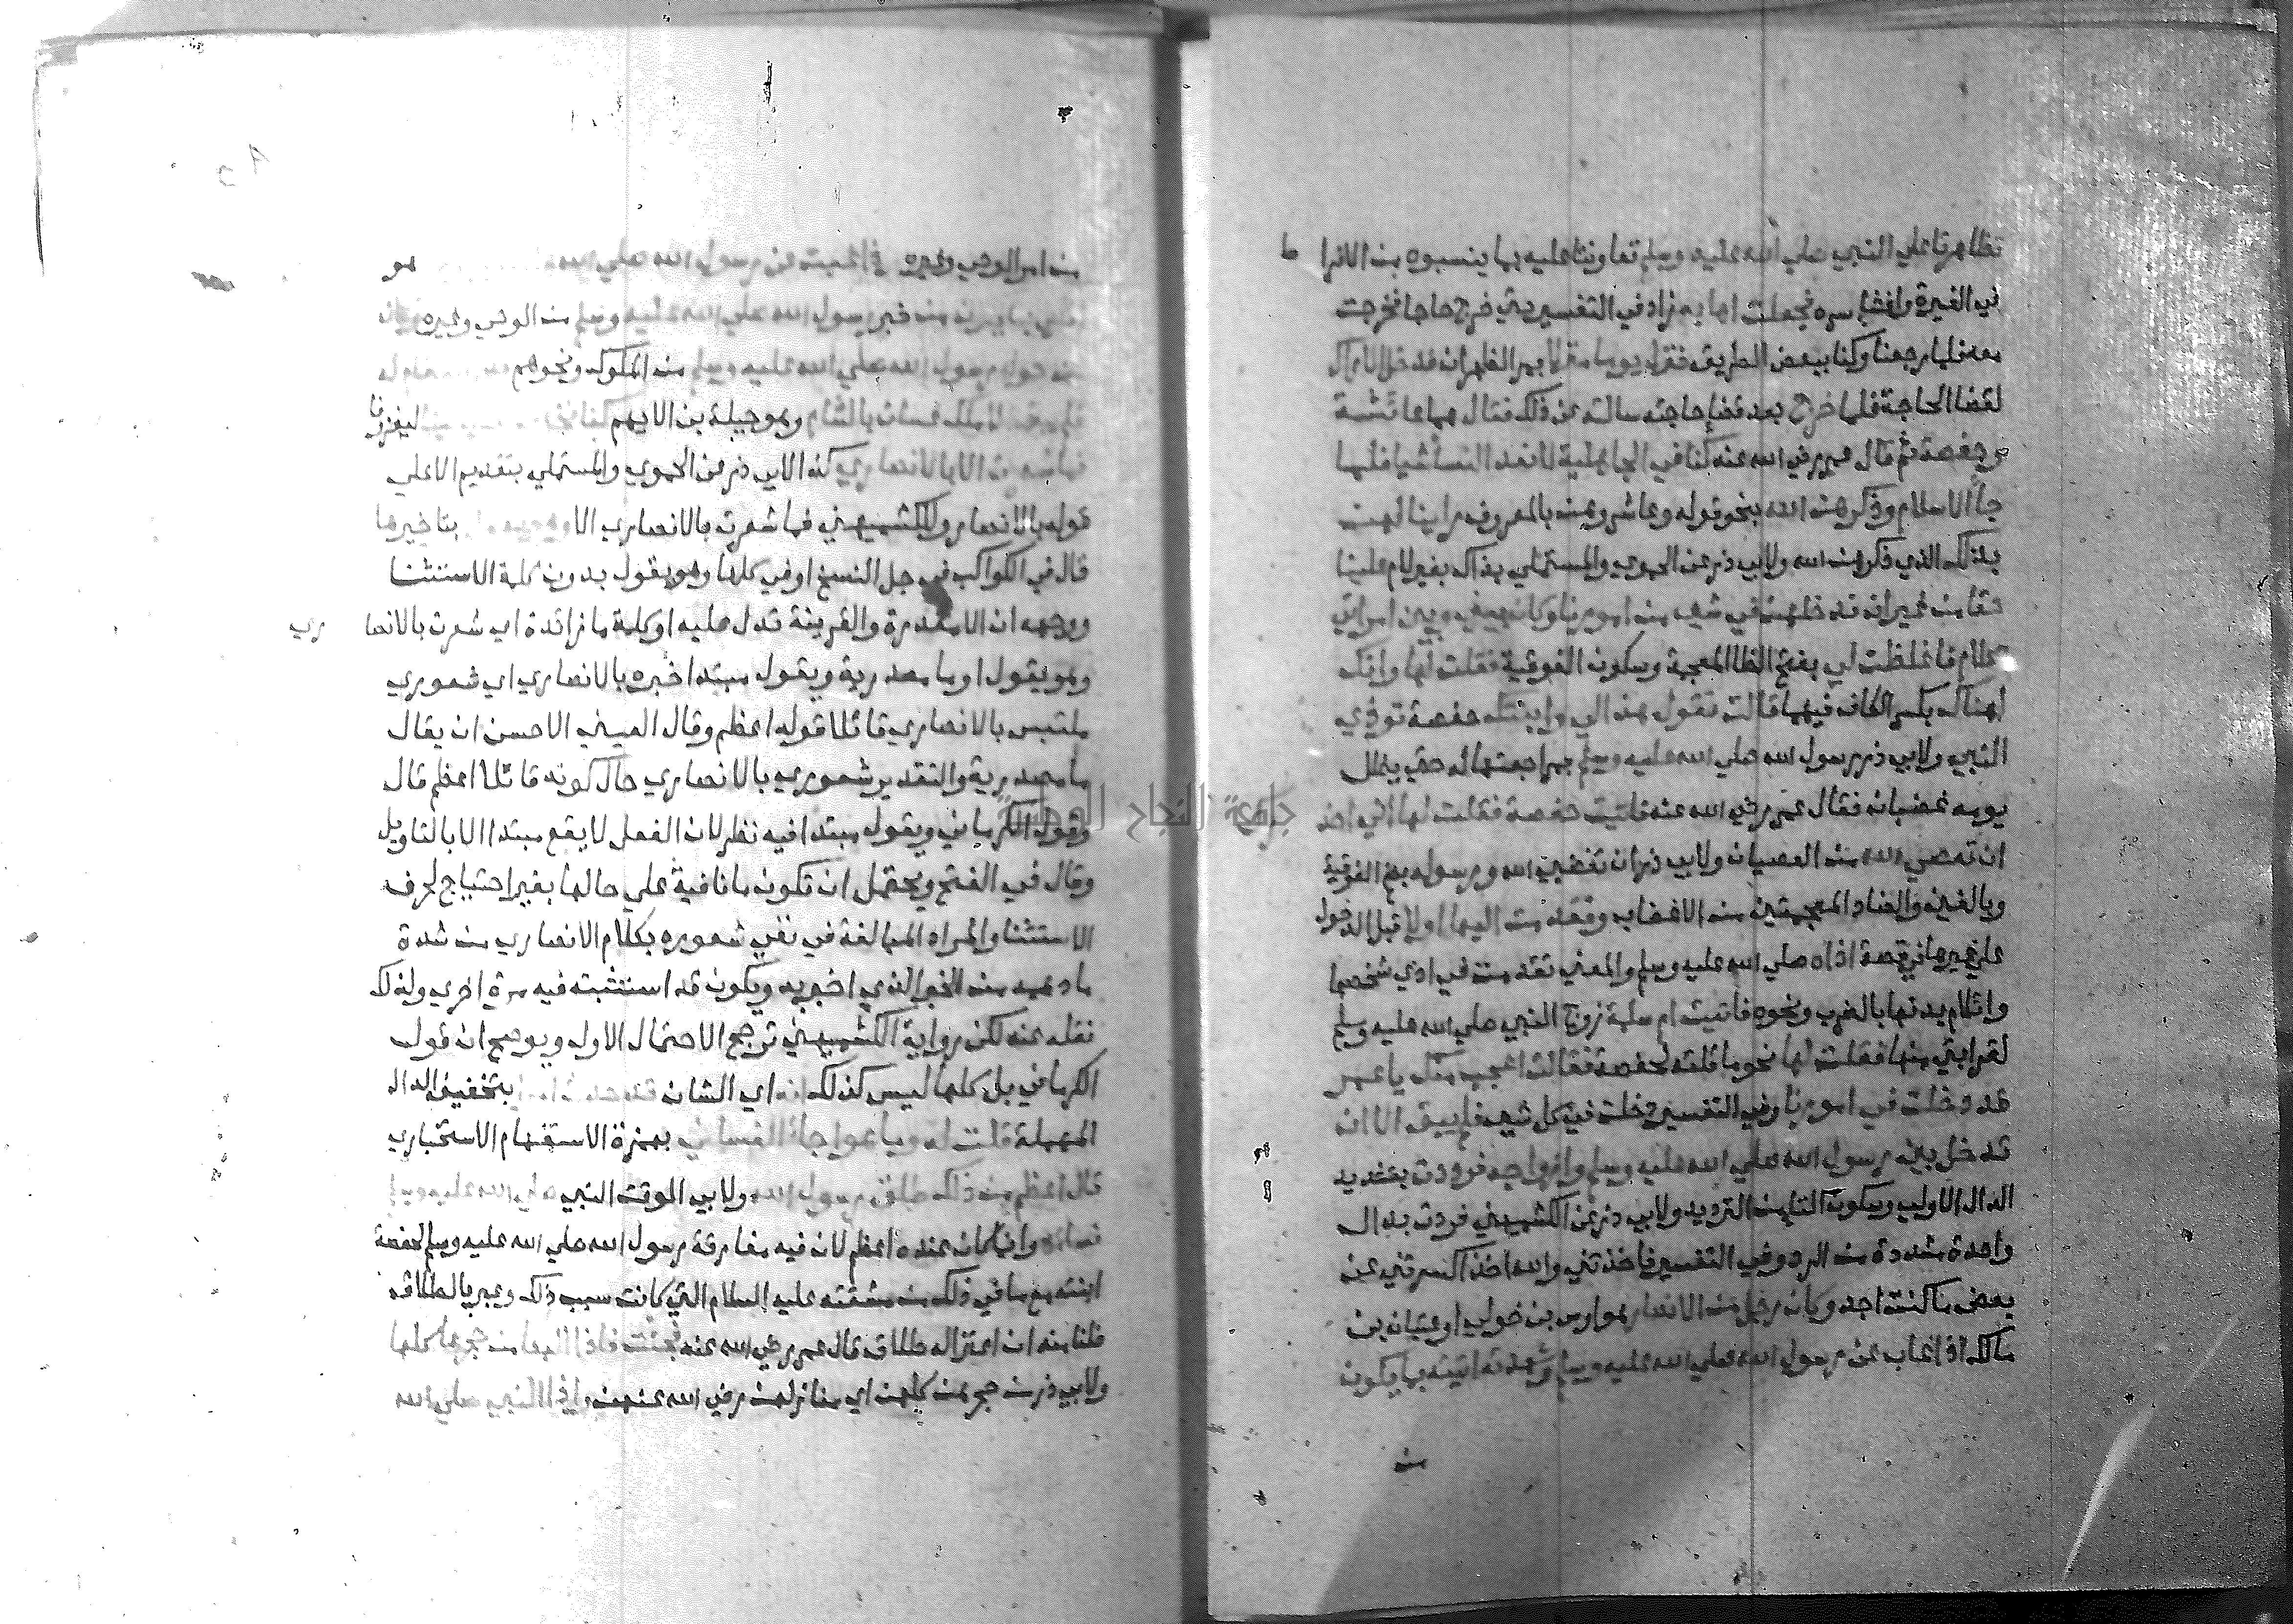 تظاهرتا علي النبي صلي الله عليه وسلم تعاونتا عليه بما ينسبوه من الافرا ط
في الغيرة وافشا سره فجعلت اهابه زاد في التفسير حتي خرج حاجا فخرجت
معه فلما رجعنا وكنا ببعض الطريق فنزل يوما منزلا بمر الظهران فدخل الاراك
لقضا الحاجة فلما خرج بعد قضا حاجته سالته عن ذلك فقال هما عائشة
وحفصة ثم قال عمر رضي الله عنه كنا في الجاهلية لا نعد النسأ شيا فلما
جأ الاسلام وذكرهن الله بنحو قوله وعاشروهن بالمعروف راينا لهن
بذلك الذي ذكرهن الله ولابي ذر عن الحموي والمستملي بذاك بغير لام علينا
حقا من غير ان ندخلهن في شي من امورنا وكان بيني وبين امراتي
كلام فاغلظت لي بفتح الظا المعجمة وسكون الفوقية فقلت لها وانك
لهناك بكسر الكاف فيهما قالت تقول هذا لي وابنتك حفصة توذي
النبي ولابي ذر رسول الله صلي الله عليه وسلم بمراجعتها له حتي يظل
يومه غضبان فقال عمر رضي الله عنه فاتيت حفصة فقلت لها اني احذ
ان تعصي الله من العصيان ولابي ذر ان تغضبي الله ورسوله بضم الفوقية
وبالغين والضاد المعجمتين من الاغضاب وتقدمت اليها اولا قبل الدخول
علي غيرها في قصة اذاه صلي الله عليه وسلم والمعني تقدمت في اذي شخصها
وايلام بدنها بالضرب ونحوه فاتيت ام سلمة زوج النبي صلي الله عليه وسلم
لقرابتي منها فقلت لها نحو ما قلته لحفصة فقالت اعجب منك يا عمر
قد دخلت في امورنا وفي التفسير دخلت في كل شي فلم يبق الا ان
تدخل بين رسول الله صلي الله عليه وسلم وازواجه فرددت بتشديد
الدال الاولي وسكون الثانية من الترديد ولابي ذر عن الكشميهني فردت بدال
واحدة مشددة من الرد وفي التفسير فاخذتني والله اخذا كسرتني عن
بعض ما كنت اجد وكان رجل من الانصار هو اوس بن خولي او عتبان بن
مالك اذا غاب عن رسول الله صلي الله عليه وسلم وشهدته اتيته بما يكون
من
من امر الوحي وغيره فاذا غبت عن رسول الله صلي الله
هو
بما يكون من خبر رسول الله صلي الله عليه وسلم من الوحي وغيره وكان
من حول رسول الله صلي الله عليه وسلم من الملوك ونحوهم
فلم يبق الا ملك غسان بالشام وهو جبلة بن الايهم كنا نخاف
ليغزونا
فما شعرت الا بالانصاري كذا لابي ذر عن الحموي والمستملي بتقديم الا علي
قوله بالانصار وللكشميهني فما شعرت بالانصاري الا وهو بتاخيرها
قال في الكواكب في جل النسخ او في كلها وهو يقول بدون كلمة الاستثنا
ووجهه ان الا مقدرة والقرينة تدل عليه او كلمة ما زائدة اي شعرت بالانصا ري
وهو يقول او ما مصدرية ويقول مبتدا خبره بالانصاري اي شعوري
ملتبس بالانصاري قائلا قوله اعظم وقال العيني الاحسن ان يقال
ما مصدرية والتقدير شعوري بالانصاري حال كونه قائلا اعظم قال
وقول الكرماني ويقول مبتدا فيه نظر لان الفعل لا يقع مبتدا الا بالتاويل
وقال في الفتح ويحتمل ان تكون ما نافية علي حالها بغير احتياج لحرف
الاستثنا والمراد المبالغة في نفي شعوره بكلام الانصاري من شدة
ما دهمه من الخبر الذي اخبر به ويكون قد استثبته فيه مرة اخري ولذلك
نقله عنه لكن رواية الكشميهني ترجح الاحتمال الاول ويوضح ان قول
الكرماني بل كلها ليس كذلك انه اي الشان قد حدث امر بتخفيف الدال
المهملة قلت له وما هو اجا الغساني بهمزة الاستفهام الاستخباري
قال اعظم من ذاك طلق رسول الله ولابي الوقت النبي صلي الله عليه وسلم
نساه وانما كان عنده اعظم لان فيه مفارقة رسول الله صلي الله عليه وسلم لحفصة
ابنته مع ما في ذلك من مشقته عليه السلام التي كانت سبب ذلك وعبر بالطلاق
ظنا منه ان اعتزاله طلاق قال عمر رضي الله عنه فجئت فاذا البكا من حجرها كلها
ولابي ذر من حجرهن كلهن اي منازلهن رضي الله عنهن واذا النبي صلي الله
جامعة النجاح الوطنية